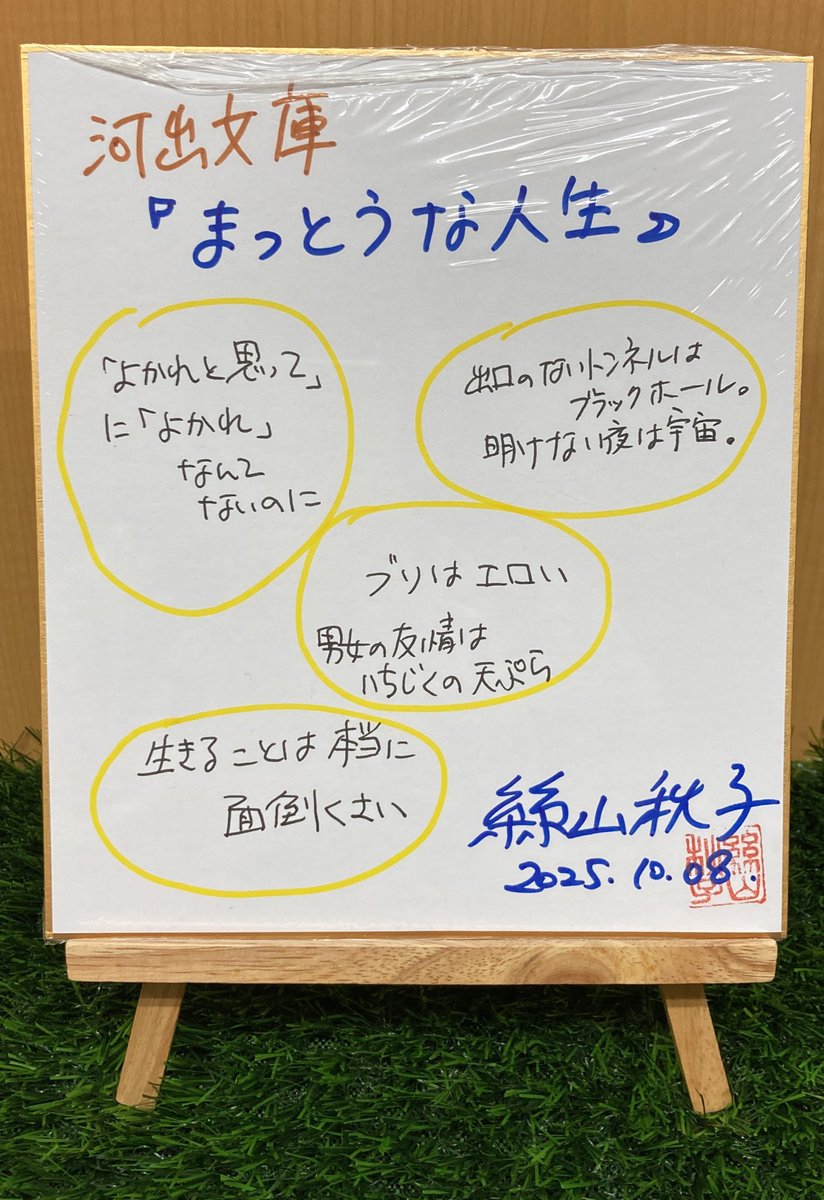 河出文庫
『まっとうな人生』
「よかれと思って」
に「よかれ」
なんて
ないのに
出口のないトンネルは
ブラックホール。
明けない夜は宇宙。
ブリはエロい
男女の友情は
いちじくの天ぷら
生きることは本当に
面倒くさい
絲山秋子
2025.10.08.